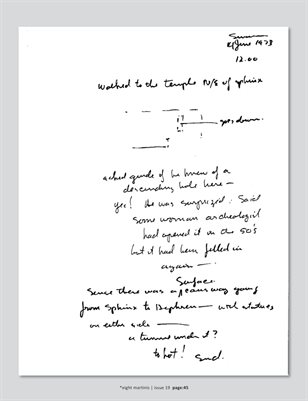 4 June 1973
12.00
Walked to the temple N/S of sphinx
goes down.
asked guide if he knew of a
descending hole here —
yes! He was surprized. Said
some woman archeologist
had opened it in the 50's
but it had been filled in
again —
Surface
Since there was a causeway going
from Sphinx to Kephren — with statues
on either side —
a tunnel under it?
to hot! End.
"eight martinis | issue 15 page:45